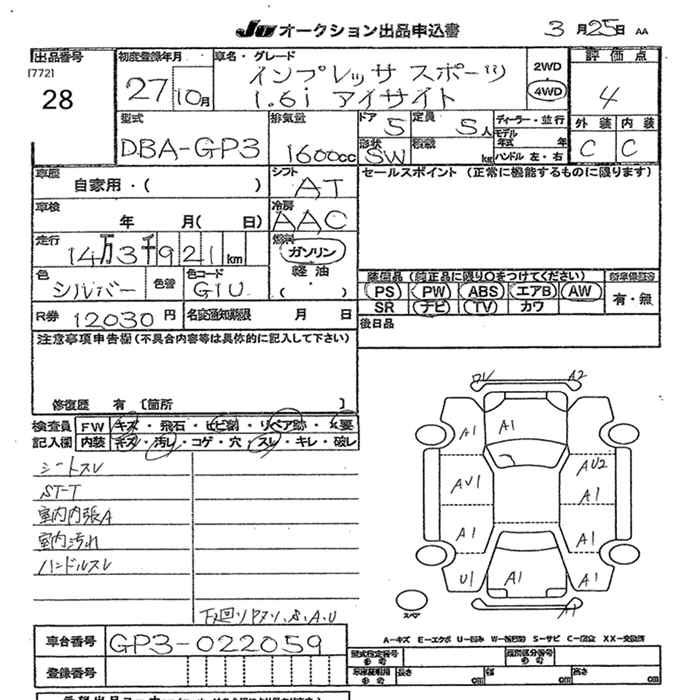 JU オークション出品申込書 3月25日 AA
出品番号 初度登録年月 車名・グレード 評価点
[772]
28 27 10月 インプレッサスポーツ 2WD 4
1.6i アイサイト 4WD
型式 排気量 ドア 定員 ディーラー・並行 外装 内装
DBA-GP3 1600cc 5 5人 モデル年式 年 C C
形状 SW 積載 kg ハンドル 左・右
車歴 シフト セールスポイント (正常に機能するものに限ります)
自家用・( ) AT
車検 冷房
年 月( 日) AAC
走行 燃料
14万3千921km ガソリン
色 色替 色コード 軽油 装備品 (純正品に限り○をつけてください)
シルバー G1U ( ・ ) PS PW ABS エアB AW 有・無
SR ナビ TV カワ
R券 12030円 名変通知期限 月 日 後日品
注意事項申告欄 (不具合内容等は具体的に記入して下さい)
修復歴 有 [箇所 ]
検査員 FW キズ・飛石・ヒビ割・リペア跡・X要
記入欄 内装 キズ・汚レ・コゲ・穴・スレ・キレ・破レ
シートスレ
ST-T
室内内張A
室内汚れ
ハンドルスレ
下回りサビ,S,A,U
A2
A1
A1 A1
AU2
AU1 A1
A1 A1
U1 A1 A1
スペア A1
A-キズ E-エクボ U-凹み W-補修跡 S-サビ C-腐食 XX-交換済
車台番号 GP3-022059
型式指定番号 類別区分番号
参考 参考
登録番号 長さ 幅 高さ